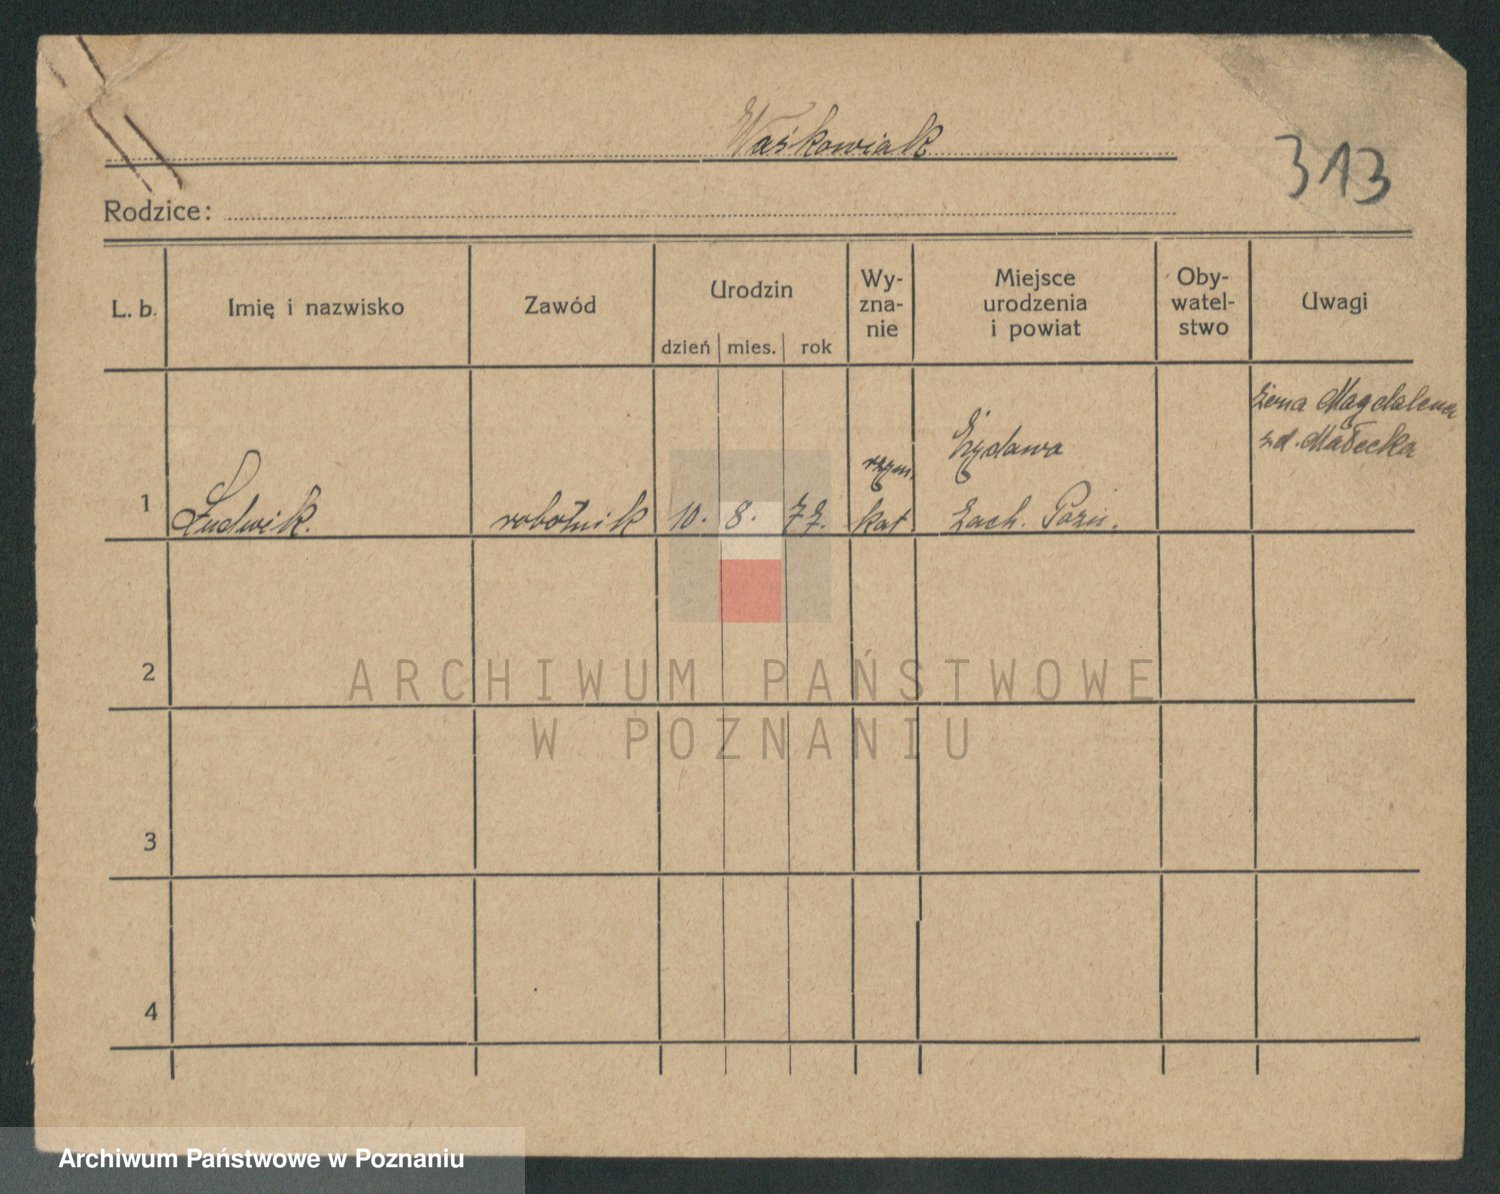 Waśkowiak
313
Rodzice:
L. b.
Imię i nazwisko
Zawód
Urodzin
dzień mies. rok
Wy-
zna-
nie
Miejsce
urodzenia
i powiat
Oby-
watel-
stwo
Uwagi
1
Ludwik.
robotnik
10. 8. 77.
rzym.
kat
Zach. Pozn.
żona Magdalena
zd. Małecka
2
3
4
ARCHIWUM PAŃSTWOWE
W POZNANIU
Archiwum Państwowe w Poznaniu